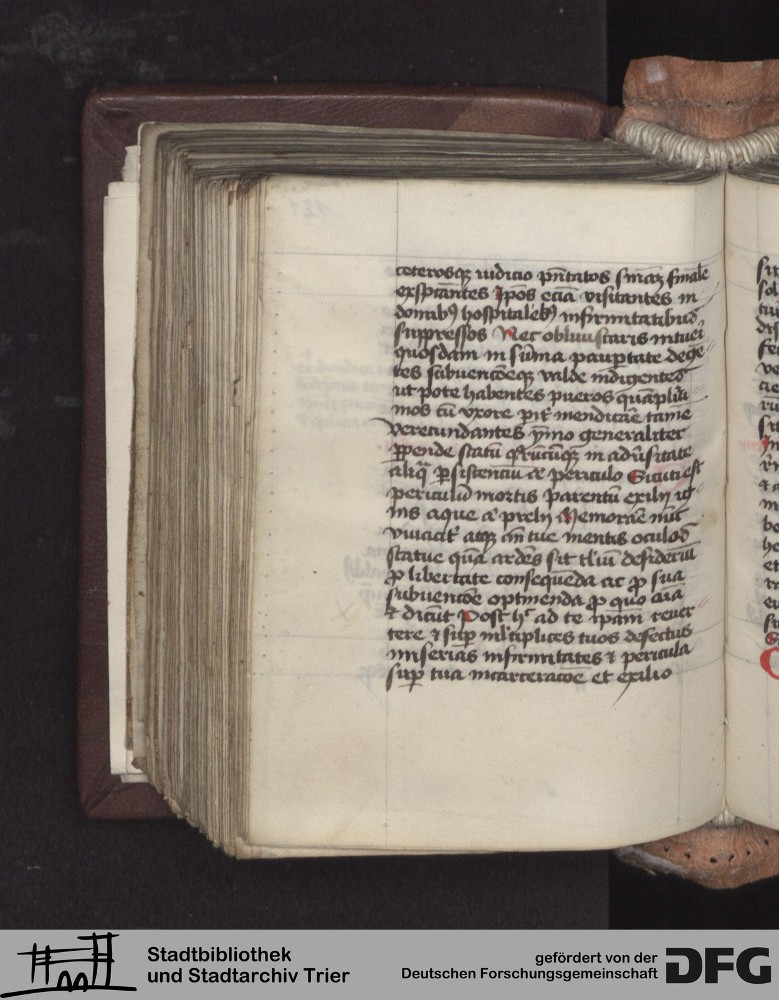 ceterosqꝫ iudicio pn̄tatos sniāꝫ finale
exspectantes Ipōs eciā visitantes in
domibꝰ hospitalebꝰ infirmitatibus
suppressos Nec obliuiscaris intuei
quosdam in sūma pauꝑtate dege
tes subuencōeqꝫ valde indigentes
ut pote habentes pueros quāplūi
mos cū vxore mendicāe tame
verecundantes ymo generaliter
ꝑpende statū in adūsitate
aliqͣ ꝑsistenciū de periculo Sicuti est
periculū mortis parentū exilij ig
nis aque de prelij Memorāe
viuacitᷓ atqꝫ in tue mentis oculos
statue quā ardēs sit desideriū
ꝓ libertate consequēda ac ꝓ sua
subuencōe optinenda ꝓ quo
⁊ dicūt Post hᷤ ad te ipām reuer
tere ⁊ suꝑ ml̓tiplices tuos defectus
miserias infirmitates ⁊ pericula
suꝑ tua incarceracōe et exilio
Stadtbibliothek
und Stadtarchiv Trier
gefördert von der
Deutschen Forschungsgemeinschaft
DFG